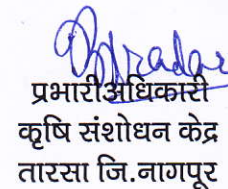 प्रभारीअधिकारी
कृषि संशोधन केंद्र
तारसा जि.नागपूर